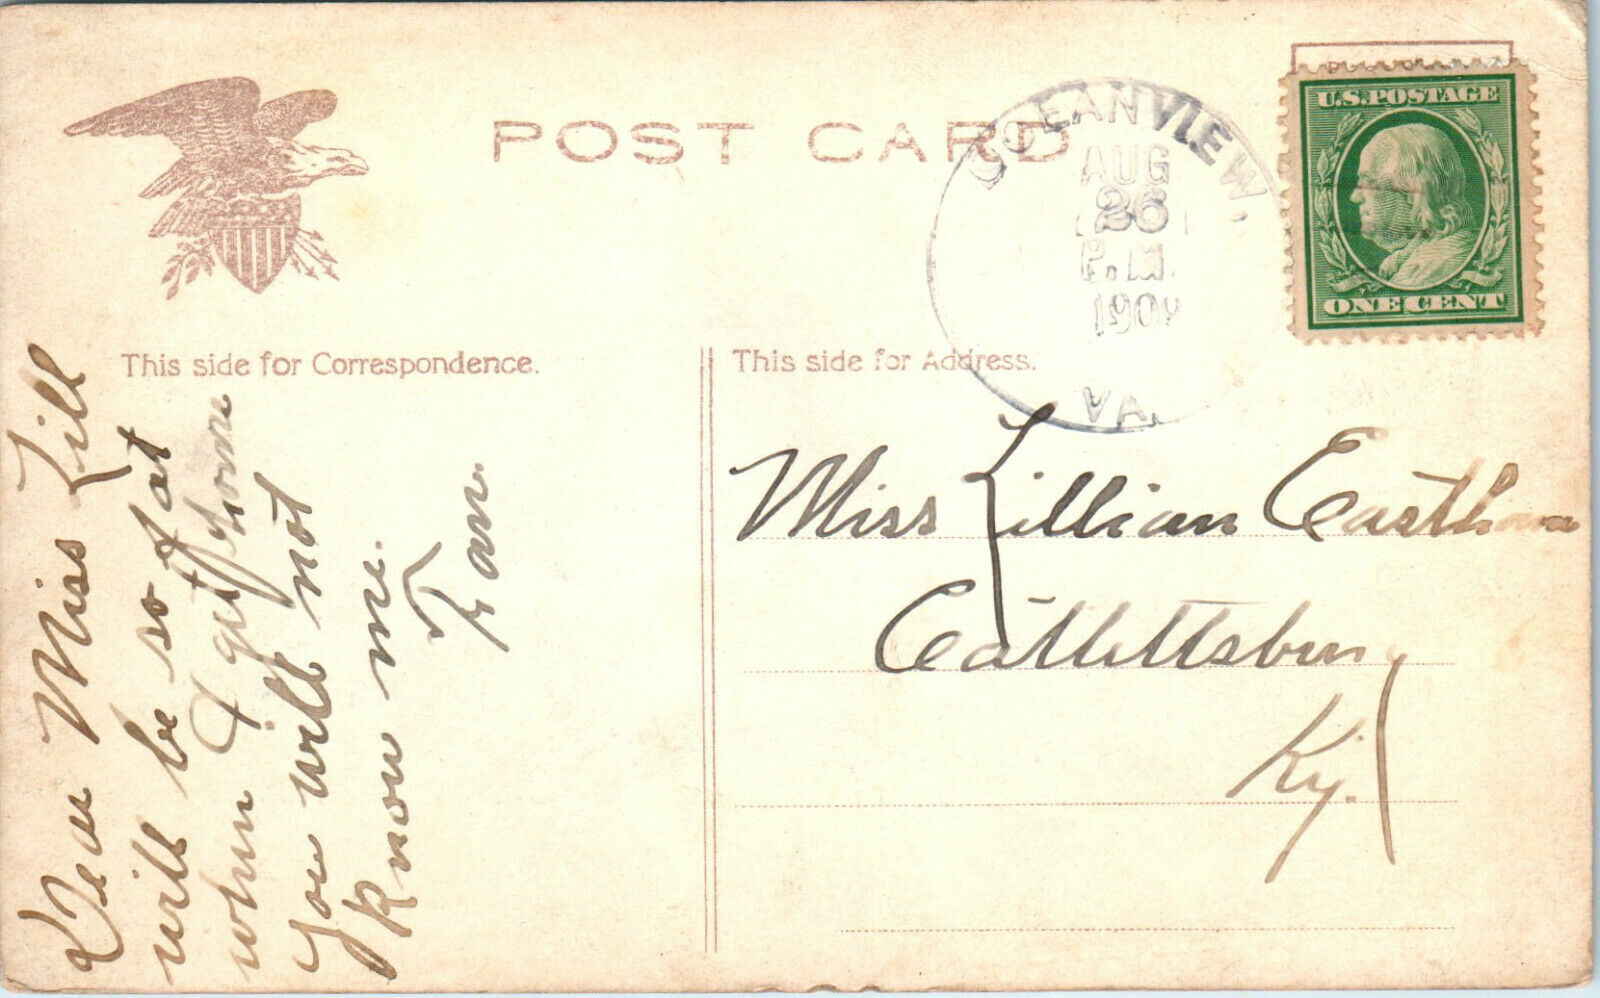 POST CARD
U.S. POSTAGE
ONE CENT
OCEANVIEW.
AUG
26
P.M.
190
VA.
This side for Correspondence.
This side for Address.
Dear Miss Lill
will be so fat
when I get home
you will not
know me.
Miss Lillian Easthom
Catlettsburg
Ky.